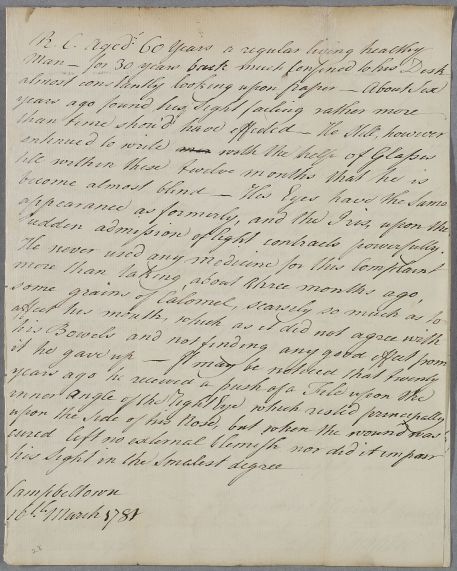 R. C. Aged 60 Years a regular living healthy
Man — for 30 years back much confined to his Desk
almost constantly looking upon paper — About Six
years ago found his Sight failing rather more
than time shoud have effected — He Still however
continued to write with the help of Glasses
till within these twelve months that he is
become almost blind — His Eyes have the Same
appearance as formerly, and the Iris, upon the
sudden admission of light contracts powerfully.
He never used any medicine for this Complaint
more than taking about three months ago,
some grains of Calomel, scarsely so much as to
affect his mouth, which as it did not agree with
his Bowels and not finding any good effect from
it he gave up — It may be noticed that twenty
years ago he received a push of a File upon the
inner angle of the right Eye which rested principally
upon the side of his Nose, but when the wound was
cured left no external blemish nor did it impair
his Sight in the smallest degree
Campbeltown
16th March 1781